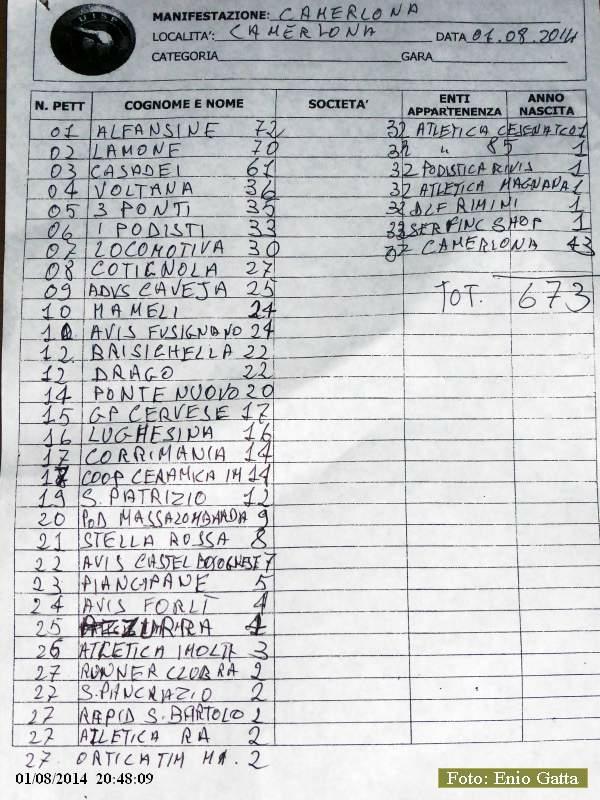 UISP
MANIFESTAZIONE: CAMERLONA
LOCALITA': CAMERLONA DATA 01.08.2014
CATEGORIA GARA
N. PETT COGNOME E NOME SOCIETA' ENTI APPARTENENZA ANNO NASCITA
01 ALFANSINE 72 32 ATLETICA CESENATCO 1
02 LAMONE 70 32 " 85 1
03 CASADEI 61 32 PODISTICA RIVIS 1
04 VOLTANA 36 32 ATLETICA MAGNANA 1
05 3 PONTI 35 32 DLF RIMINI 1
06 I PODISTI 33 32 SERFINC SHOP 1
07 LOCOMOTIVA 30 07 CAMERLONA 43
08 COTIGNOLA 27
09 ADVS CAVEJA 25 TOT. 673
10 MAMELI 24
10 AVIS FUSIGNANO 24
12 BRISICHELLA 22
12 DRAGO 22
14 PONTE NUOVO 20
15 GP CERVESE 17
16 LUGHESINA 16
17 CORRIMANIA 14
17 COOP CERAMICA IM 14
19 S. PATRIZIO 12
20 POD MASSALOMBARDA 9
21 STELLA ROSSA 8
22 AVIS CASTEL BOLOGNESE 7
23 PIANGIPANE 5
24 AVIS FORLI 4
25 4
26 ATLETICA IMOLA 3
27 RUNNER CLUB RA 2
27 S. PANCRAZIO 2
27 RAPID S. BARTOLO 2
27 ATLETICA RA 2
27. ORTICA TIM MI. 2
01/08/2014 20:48:09
Foto: Enio Gatta